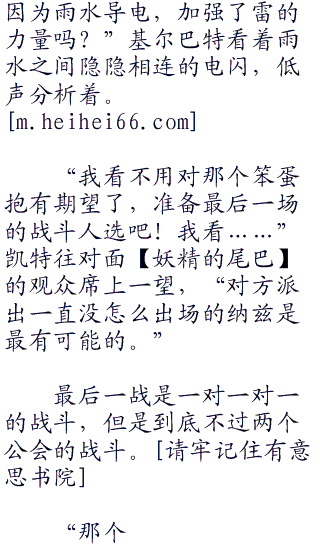 因为雨水导电，加强了雷的
力量吗？”基尔巴特看着雨
水之间隐隐相连的电闪，低
声分析着。
[m.heihei66.com]
“我看不用对那个笨蛋
抱有期望了，准备最后一场
的战斗人选吧！我看……”
凯特往对面【妖精的尾巴】
的观众席上一望，“对方派
出一直没怎么出场的纳兹是
最有可能的。”
最后一战是一对一对一
的战斗，但是到底不过两个
公会的战斗。[请牢记住有意
思书院]
“那个